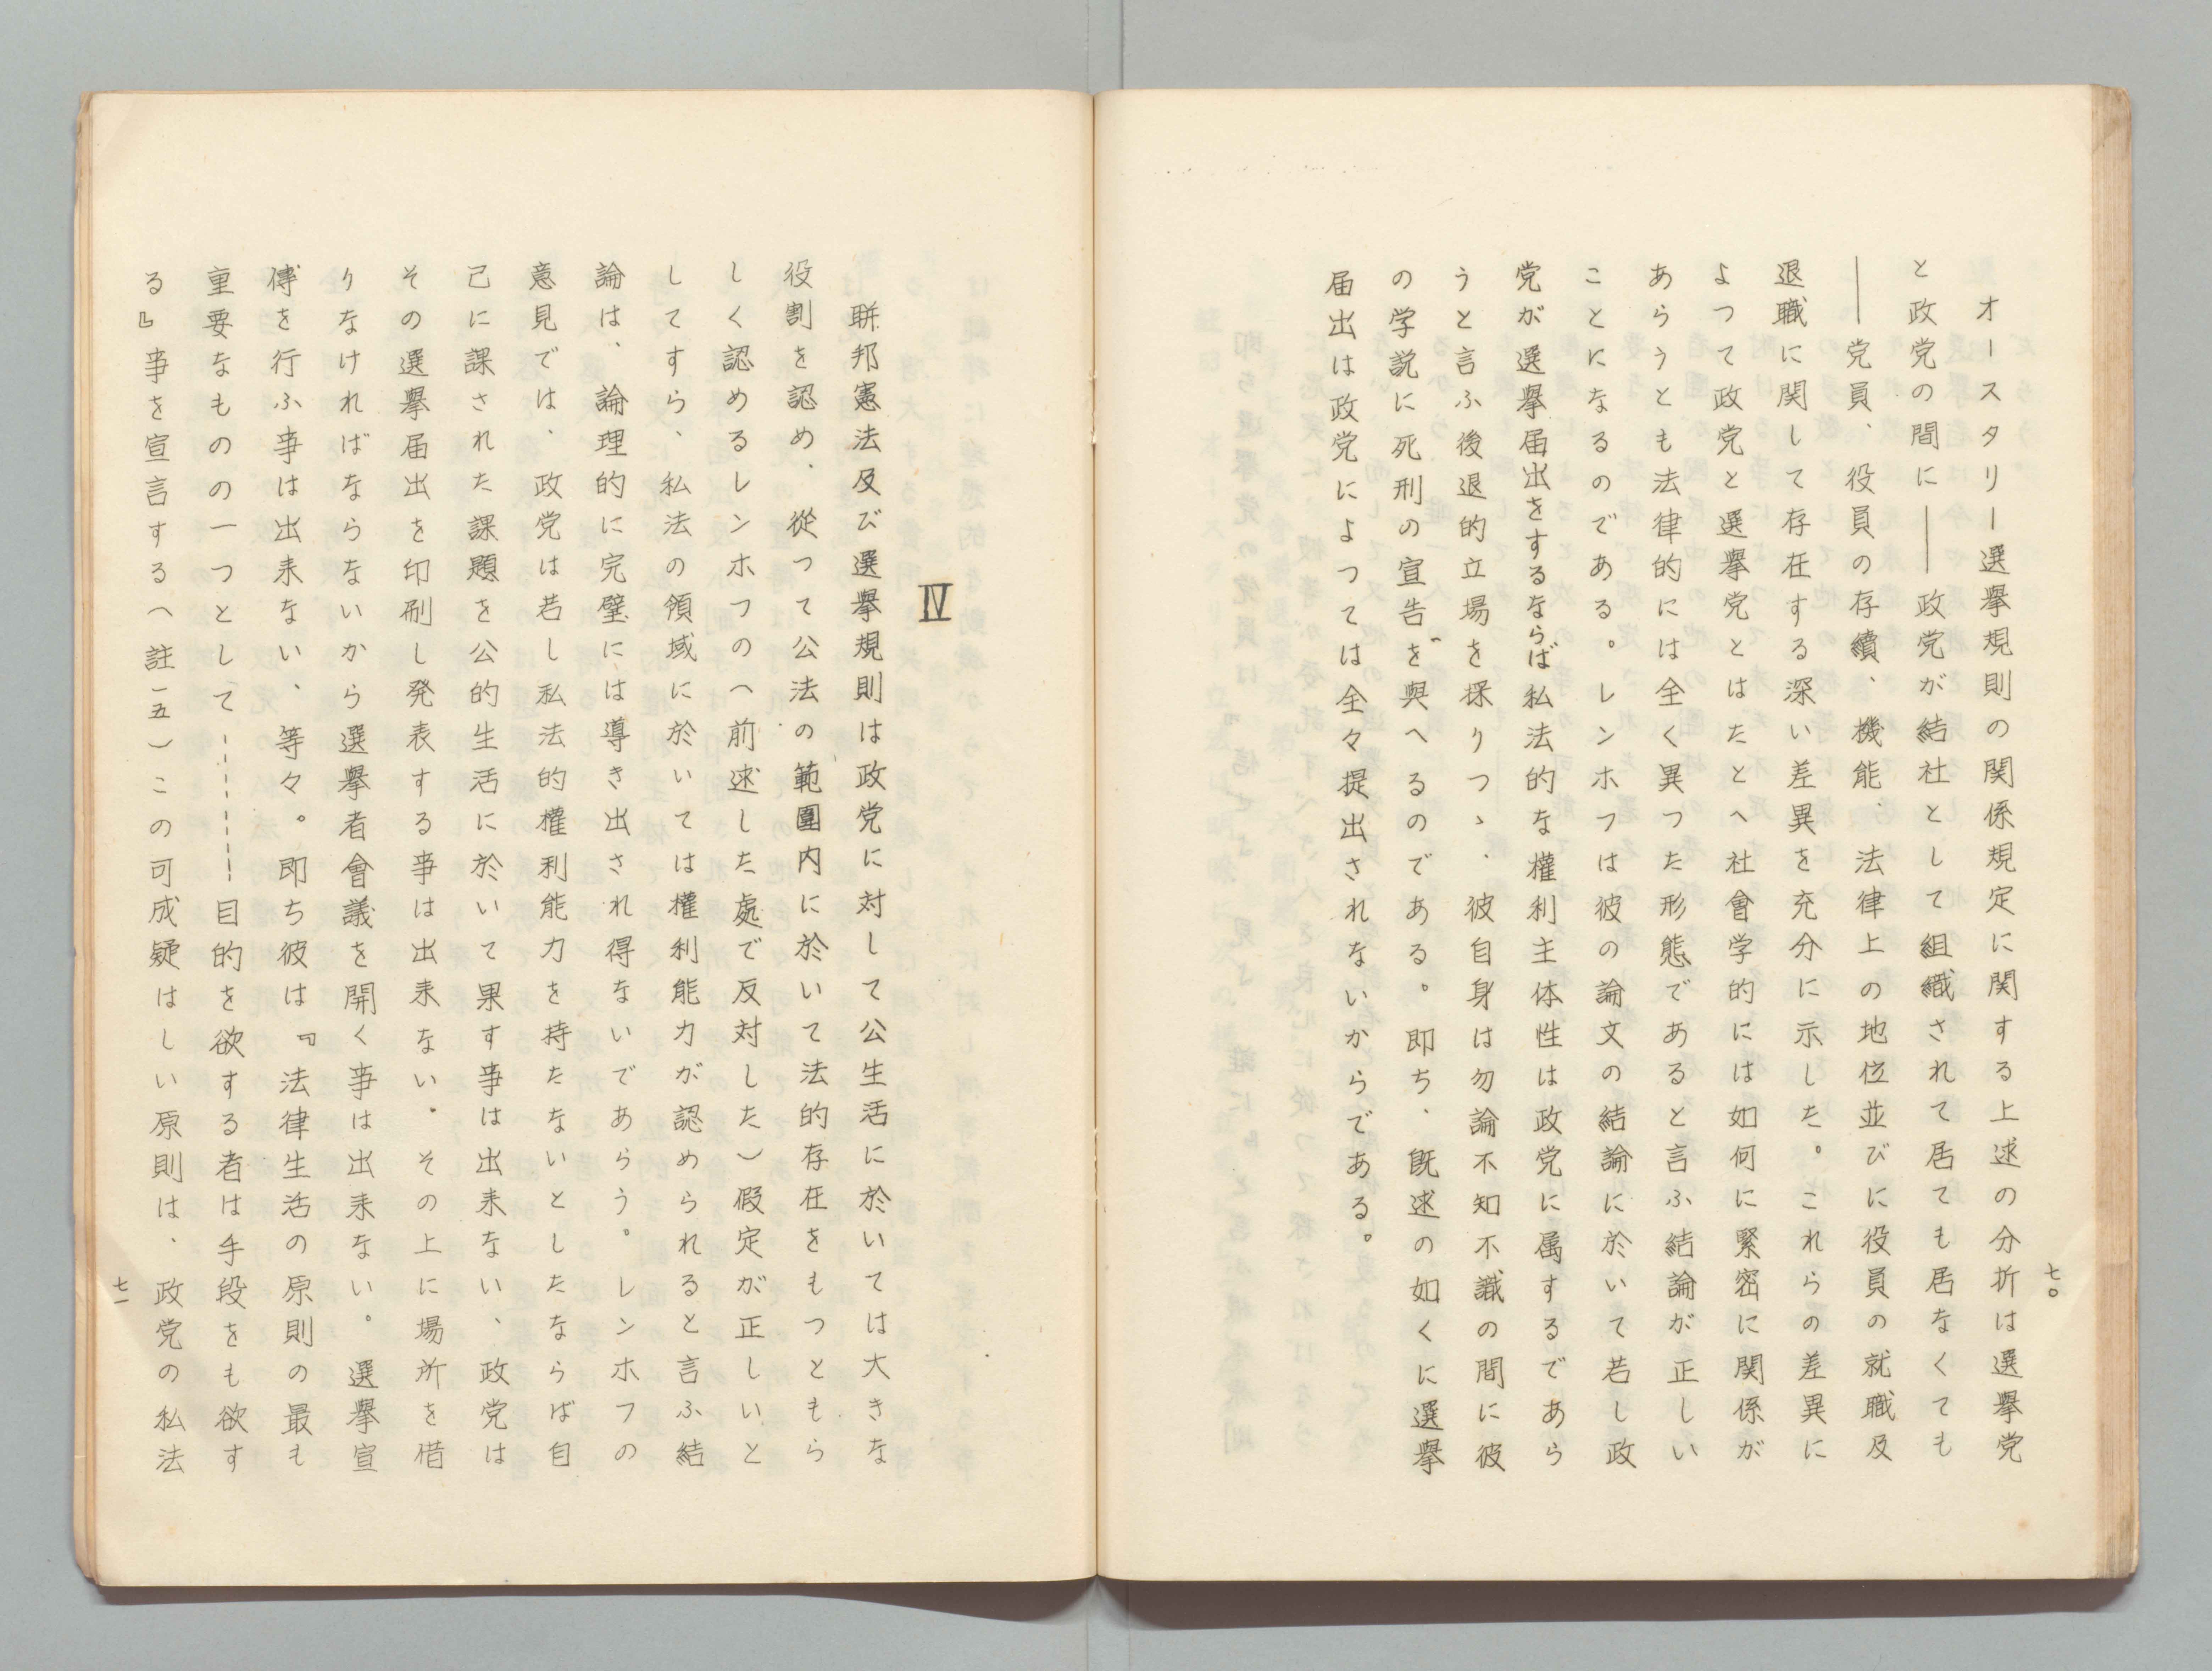 オースタリー選擧規則の関係規定に関する上述の分折は選擧党
と政党の間に――政党が結社として組織されて居ても居なくても
――党員、役員の存續、機能、法律上の地位並びに役員の就職及
退職に関して存在する深い差異を充分に示した。これらの差異に
よつて政党と選擧党とはたとへ社會学的には如何に緊密に関係が
あらうとも法律的には全く異つた形態であると言ふ結論が正しい
ことになるのである。レンホフは彼の論文の結論に於いて若し政
党が選擧届出をするならば私法的な權利主体性は政党に属するであら
うと言ふ後退的立場を採りつゝ、彼自身は勿論不知不識の間に彼
の学説に死刑の宣告を與へるのである。即ち、既述の如くに選擧
届出は政党によつては全々提出されないからである。
七〇
Ⅳ
聯邦憲法及び選擧規則は政党に対して公生活に於いては大きな
役割を認め、從つて公法の範圍内に於いて法的存在をもつともら
しく認めるレンホフの(前述した處で反対した)假定が正しいと
してすら、私法の領域に於いては權利能力が認められると言ふ結
論は、論理的に完璧には導き出され得ないであらう。レンホフの
意見では、政党は若し私法的權利能力を持たないとしたならば自
己に課された課題を公的生活に於いて果す事は出来ない、政党は
その選擧届出を印刷し発表する事は出来ない。その上に場所を借
りなければならないから選擧者會議を開く事は出来ない。選擧宣
傳を行ふ事は出来ない、等々。即ち彼は『法律生活の原則の最も
重要なものの一つとして---------目的を欲する者は手段をも欲す
る』事を宣言する(註一五)この可成疑はしい原則は、政党の私法
七一